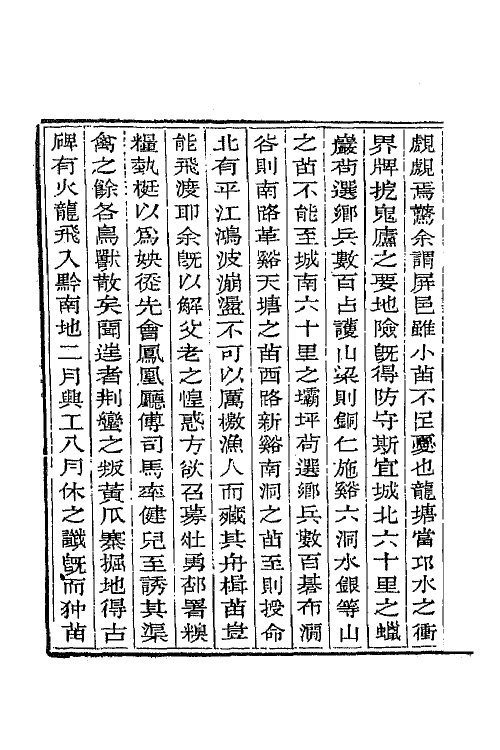 覷覷焉驚余謂屏邑雖小苗不足憂也龍塘當邛水之衝
界牌挖鬼廬之要地險旣得防守斯宜城北六十里之蠟
巖苟選鄉兵數百占護山梁則銅仁施谿六洞水銀等山
之苗不能至城南六十里之壩坪苟選鄉兵數百碁布澗
峇則南路革谿天塘之苗西路新谿南洞之苗至則授命
北有平江鴻波崩盪不可以厲檄漁人而藏其舟楫苗豈
能飛渡耶余旣以解父老之惶惑方欲召募壯勇部署糗
糧熱梃以爲㛂從先會鳳凰廳傅司馬率健兒至誘其渠
禽之餘各鳥獸散矣聞逆者荆蠻之叛黃瓜寨掘地得古
碑有火龍飛入黔南地二月興工八月休之讖旣而狆苗